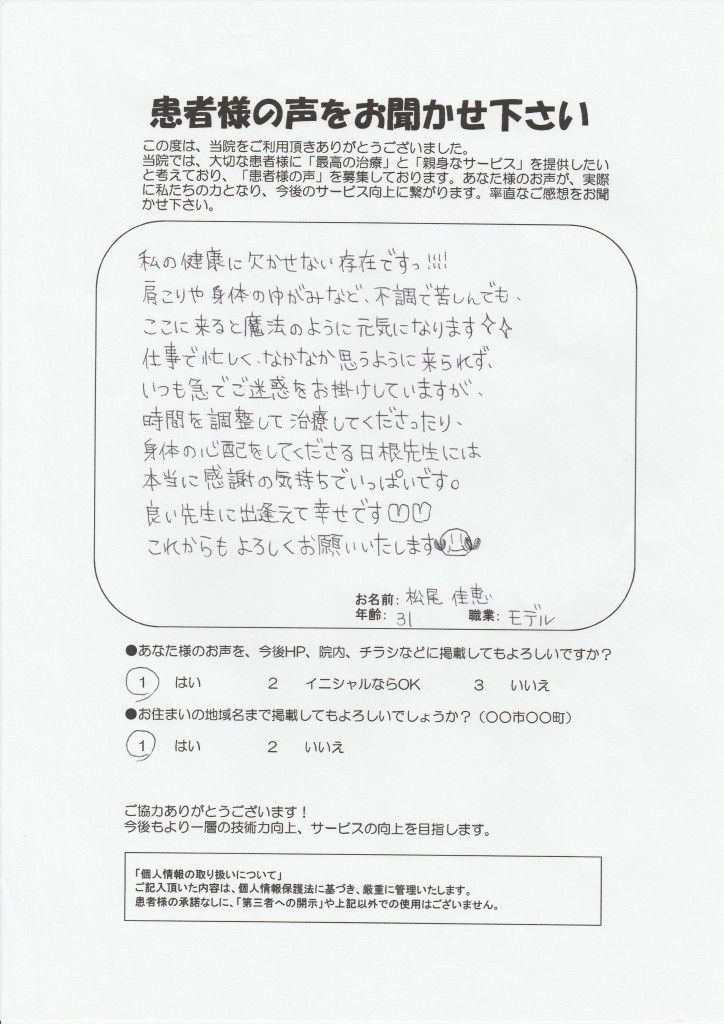 患者様の声をお聞かせ下さい
この度は、当院をご利用頂きありがとうございました。
当院では、大切な患者様に「最高の治療」と「親身なサービス」を提供したい
と考えており、「患者様の声」を募集しております。あなた様のお声が、実際
に私たちの力となり、今後のサービス向上に繋がります。率直なご感想をお聞
かせ下さい。
私の健康に欠かせない存在ですっ!!!!
肩こりや身体のゆがみなど、不調で苦しんでも、
ここに来ると魔法のように元気になります✧✧
仕事で忙しく、なかなか思うように来られず、
いつも急でご迷惑をお掛けしていますが、
時間を調整して治療してくださったり、
身体の心配をしてくださる日根先生には
本当に感謝の気持ちでいっぱいです。
良い先生に出逢えて幸せです♡♡
これからもよろしくお願いいたします
お名前: 松尾 佳恵
年齢: 31 職業: モデル
●あなた様のお声を、今後HP、院内、チラシなどに掲載してもよろしいですか?
1 はい 2 イニシャルならOK 3 いいえ
●お住まいの地域名まで掲載してもよろしいでしょうか?(〇〇市〇〇町)
1 はい 2 いいえ
ご協力ありがとうございます!
今後もより一層の技術力向上、サービスの向上を目指します。
「個人情報の取り扱いについて」
ご記入頂いた内容は、個人情報保護法に基づき、厳重に管理いたします。
患者様の承諾なしに、「第三者への開示」や上記以外での使用はございません。